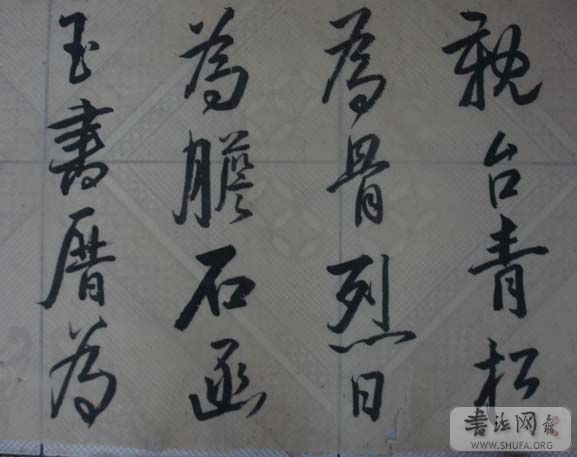 台青松
為骨烈日
為膽石函
玉書曆為
書法网
WWW.SHUFA.ORG